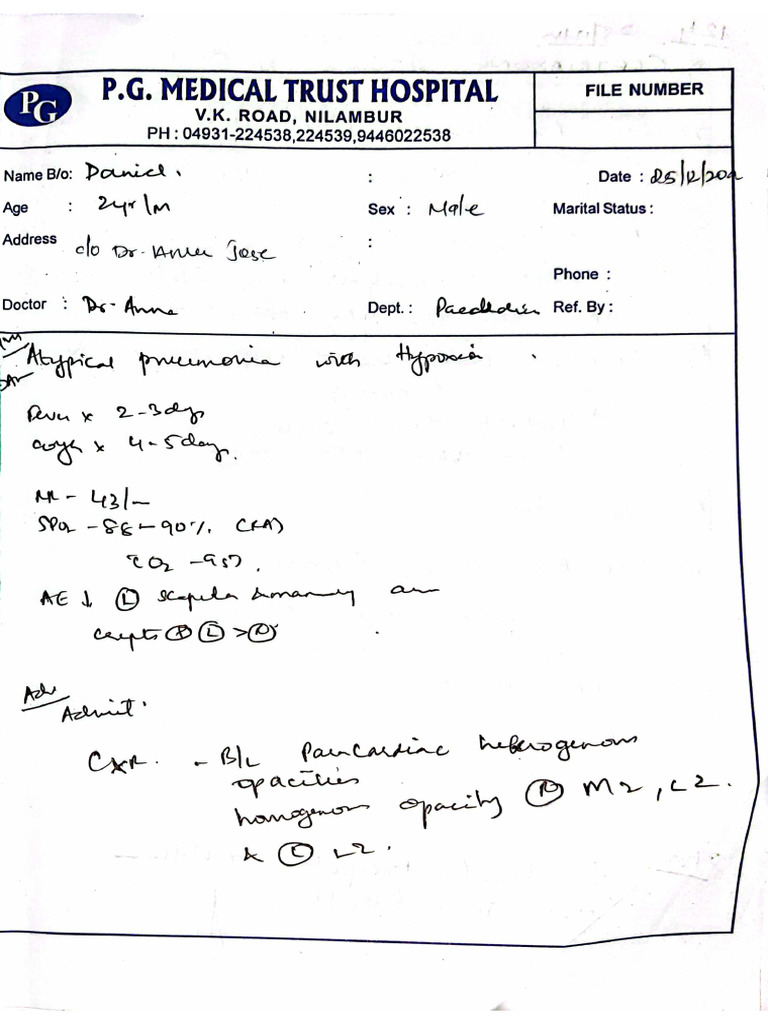 PG
P.G. MEDICAL TRUST HOSPITAL
V.K. ROAD, NILAMBUR
PH : 04931-224538,224539,9446022538
FILE NUMBER
Name B/o: Daniel. :
Date : 25/12/202
Age : 2yr/m
Sex : Male
Marital Status :
Address c/o Dr. Jose :
Phone :
Doctor : Dr- Anna
Dept. :
Ref. By :
Atypical pneumonia with Hypoxia .
Fever x 2-3days
cough x 4-5days.
RR - 43/-
SPO2 - 88-90% (RA)
O2 - 95%.
AE ↓ (L) scapular
crepts (P) (L) > (R)
Adv
Admit.
CXR. - B/L Paracardiac heterogenous
opacities
homogenous opacity (R) M2, L2.
& (L) L2.